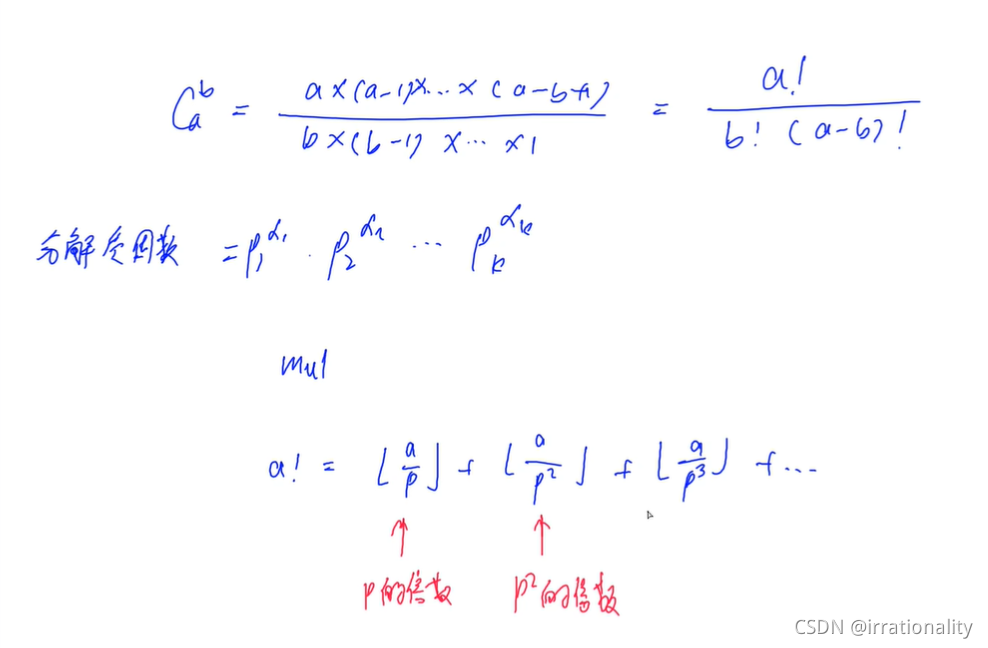 C_a^b = a×(a-1)×...×(a-b+1) / b×(b-1)×...×1 = a! / b!(a-b)!
分解质因数 = p₁^α₁ · p₂^α₂ ... p_k^α_k
mul
a! = ⌊a/p⌋ + ⌊a/p²⌋ + ⌊a/p³⌋ + ...
p的倍数 p²的倍数
CSDN @irrationality